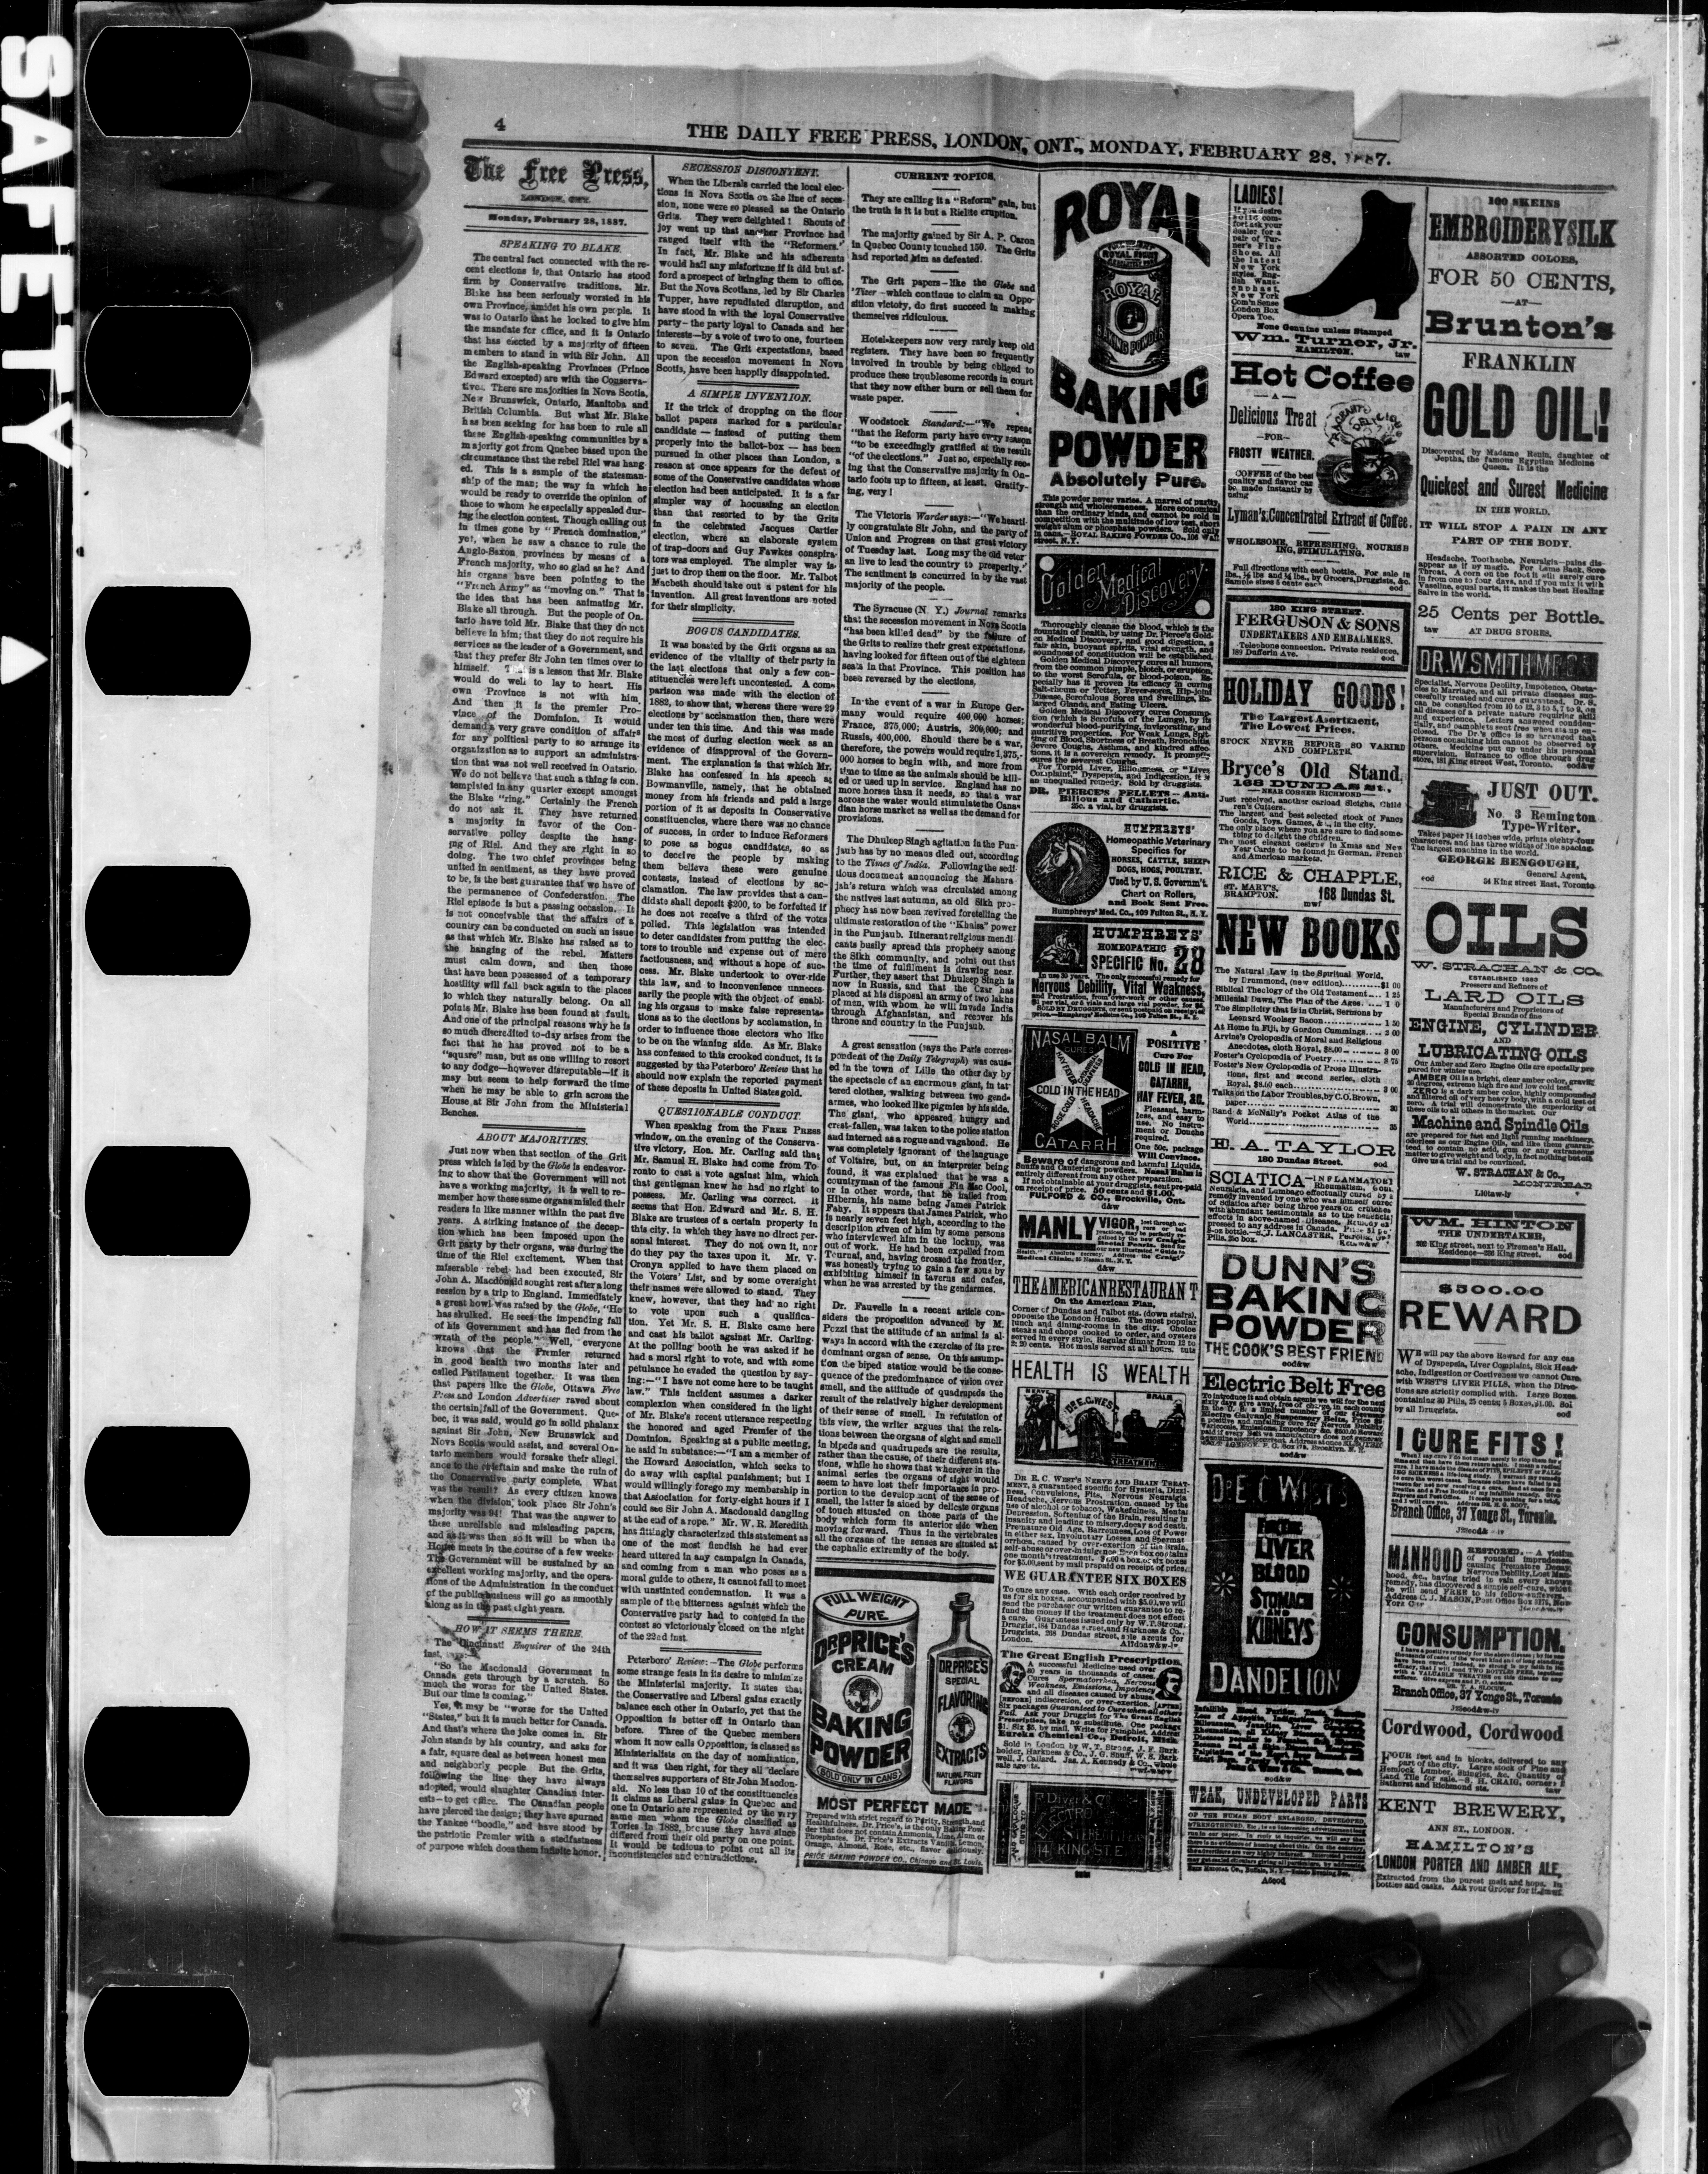 SAFETY
4
THE DAILY FREE PRESS, LONDON, ONT., MONDAY, FEBRUARY 28, 1887.
The Free Press,
LONDON, ONT.
Monday, February 28, 1887.
SPEAKING TO BLAKE.
The central fact connected with the re-
cent elections is, that Ontario has stood
firm by Conservative traditions. Mr.
Blake has been seriously worsted in his
own Province, amidst his own people. It
was to Ontario that he looked to give him
the mandate for office, and it is Ontario
that has elected by a majority of fifteen
members to stand in with Sir John. All
the English-speaking Provinces (Prince
Edward excepted) are with the Conserva-
tives. There are majorities in Nova Scotia,
New Brunswick, Ontario, Manitoba and
British Columbia. But what Mr. Blake
has been seeking for has been to rule all
these English-speaking communities by a
majority got from Quebec based upon the
circumstance that the rebel Riel was hang-
ed. This is a sample of the statesman-
ship of the man; the way in which he
would be ready to override the opinion of
those to whom he especially appealed dur-
ing the election contest. Though calling out
in times gone by "French domination,"
yet, when he saw a chance to rule the
Anglo-Saxon provinces by means of a
French majority, who so glad as he? And
his organs have been pointing to the
"French Army" as "moving on." That is
the idea that has been animating Mr.
Blake all through. But the people of On-
tario have told Mr. Blake that they do not
believe in him; that they do not require his
services as the leader of a Government, and
that they prefer Sir John ten times over to
himself. This is a lesson that Mr. Blake
would do well to lay to heart. His
own Province is not with him.
And then it is the premier Pro-
vince of the Dominion. It would
demand a very grave condition of affairs
for any political party to so arrange its
organization as to support an administra-
tion that was not well received in Ontario.
We do not believe that such a thing is con-
templated in any quarter except amongst
the Blake "ring." Certainly the French
do not ask it. They have returned
a majority in favor of the Con-
servative policy despite the hang-
ing of Riel. And they are right in so
doing. The two chief provinces being
united in sentiment, as they have proved
to be, is the best guarantee that we have of
the permanence of Confederation. The
Riel episode is but a passing occasion. It
is not conceivable that the affairs of a
country can be conducted on such an issue
as that which Mr. Blake has raised as to
the hanging of the rebel. Matters
must calm down, and then those
that have been possessed of a temporary
hostility will fall back again to the places
to which they naturally belong. On all
points Mr. Blake has been found at fault.
And one of the principal reasons why he is
so much discredited to-day arises from the
fact that he has proved not to be a
"square" man, but as one willing to resort
to any dodge—however disreputable—if it
may but seem to help forward the time
when he may be able to grin across the
House at Sir John from the Ministerial
Benches.
ABOUT MAJORITIES.
Just now when that section of the Grit
press which is led by the Globe is endeavor-
ing to show that the Government will not
have a working majority, it is well to re-
member how these same organs misled their
readers in like manner within the past five
years. A striking instance of the decep-
tion which has been imposed upon the
Grit party by their organs, was during the
time of the Riel excitement. When that
miserable rebel had been executed, Sir
John A. Macdonald sought rest after a long
session by a trip to England. Immediately
a great howl was raised by the Globe, "He
has skulked. He sees the impending fall
of his Government and has fled from the
wrath of the people." Well, everyone
knows that the Premier returned
in good health two months later and
called Parliament together. It was then
that papers like the Globe, Ottawa Free
Press and London Advertiser raved about
the certain fall of the Government. Que-
bec, it was said, would go in solid phalanx
against Sir John, New Brunswick and
Nova Scotia would assist, and several On-
tario members would forsake their allegi-
ance to the chieftain and make the ruin of
the Conservative party complete. What
was the result? As every citizen knows
when the division took place Sir John's
majority was 94! That was the answer to
these unreliable and misleading papers,
and as it was then so it will be when the
House meets in the course of a few weeks.
The Government will be sustained by an
excellent working majority, and the opera-
tions of the Administration in the conduct
of the public business will go as smoothly
along as in the past eight years.
HOW IT SEEMS THERE.
The Cincinnati Enquirer of the 24th
inst. says:—
"So the Macdonald Government in
Canada gets through by a scratch. So
much the worse for the United States.
But our time is coming."
Yes, it may be "worse for the United
"States," but it is much better for Canada.
And that's where the joke comes in. Sir
John stands by his country, and asks for
a fair, square deal as between honest men
and neighborly people. But the Grits,
following the line they have always
adopted, would slaughter Canadian inter-
ests—to get office. The Canadian people
have pierced the design; they have spurned
the Yankee "boodle," and have stood by
the patriotic Premier with a stedfastness
of purpose which does them infinite honor.
SECESSION DISCONTENT.
When the Liberals carried the local elec-
tions in Nova Scotia on the line of seces-
sion, none were so pleased as the Ontario
Grits. They were delighted! Shouts of
joy went up that another Province had
ranged itself with the "Reformers."
In fact, Mr. Blake and his adherents
would hail any misfortune if it did but af-
ford a prospect of bringing them to office.
But the Nova Scotians, led by Sir Charles
Tupper, have repudiated disruption, and
have stood in with the loyal Conservative
party—the party loyal to Canada and her
interests—by a vote of two to one, fourteen
to seven. The Grit expectations, based
upon the secession movement in Nova
Scotia, have been happily disappointed.
A SIMPLE INVENTION.
If the trick of dropping on the floor
ballot papers marked for a particular
candidate — instead of putting them
properly into the ballot-box — has been
pursued in other places than London, a
reason at once appears for the defeat of
some of the Conservative candidates whose
election had been anticipated. It is a far
simpler way of hocussing an election
than that resorted to by the Grits
in the celebrated Jacques Cartier
election, where an elaborate system
of trap-doors and Guy Fawkes conspira-
tors was employed. The simpler way is
just to drop them on the floor. Mr. Talbot
Macbeth should take out a patent for his
invention. All great inventions are noted
for their simplicity.
BOGUS CANDIDATES.
It was boasted by the Grit organs as an
evidence of the vitality of their party in
the last elections that only a few con-
stituencies were left uncontested. A com-
parison was made with the election of
1882, to show that, whereas there were 29
elections by acclamation then, there were
under ten this time. And this was made
the most of during election week as an
evidence of disapproval of the Govern-
ment. The explanation is that which Mr.
Blake has confessed in his speech at
Bowmanville, namely, that he obtained
money from his friends and paid a large
portion of it as deposits in Conservative
constituencies, where there was no chance
of success, in order to induce Reformers
to pose as bogus candidates, so as
to deceive the people by making
them believe these were genuine
contests, instead of elections by ac-
clamation. The law provides that a can-
didate shall deposit $200, to be forfeited if
he does not receive a third of the votes
polled. This legislation was intended
to deter candidates from putting the elec-
tors to trouble and expense out of mere
factiousness, and without a hope of suc-
cess. Mr. Blake undertook to over-ride
this law, and to inconvenience unneces-
sarily the people with the object of enabl-
ing his organs to make false representa-
tions as to the elections by acclamation, in
order to influence those electors who like
to be on the winning side. As Mr. Blake
has confessed to this crooked conduct, it is
suggested by the Peterboro' Review that he
should now explain the reported payment
of these deposits in United States gold.
QUESTIONABLE CONDUCT.
When speaking from the FREE PRESS
window, on the evening of the Conserva-
tive victory, Hon. Mr. Carling said that
Mr. Samuel H. Blake had come from To-
ronto to cast a vote against him, which
that gentleman knew he had no right to
possess. Mr. Carling was correct. It
seems that Hon. Edward and Mr. S. H.
Blake are trustees of a certain property in
this city, in which they have no direct per-
sonal interest. They do not own it, nor
do they pay the taxes upon it. Mr. V.
Cronyn applied to have them placed on
the Voters' List, and by some oversight
their names were allowed to stand. They
knew, however, that they had no right
to vote upon such a qualifica-
tion. Yet Mr. S. H. Blake came here
and cast his ballot against Mr. Carling.
At the polling booth he was asked if he
had a moral right to vote, and with some
petulance he evaded the question by say-
ing:—"I have not come here to be taught
law." This incident assumes a darker
complexion when considered in the light
of Mr. Blake's recent utterance respecting
the honored and aged Premier of the
Dominion. Speaking at a public meeting,
he said in substance:—"I am a member of
the Howard Association, which seeks to
do away with capital punishment; but I
would willingly forego my membership in
that Association for forty-eight hours if I
could see Sir John A. Macdonald dangling
at the end of a rope." Mr. W. R. Meredith
has fittingly characterized this statement as
one of the most fiendish he had ever
heard uttered in any campaign in Canada,
and coming from a man who poses as a
moral guide to others, it cannot fail to meet
with unstinted condemnation. It was a
sample of the bitterness against which the
Conservative party had to contend in the
contest so victoriously closed on the night
of the 22nd inst.
Peterboro' Review:—The Globe performs
some strange feats in its desire to minimize
the Ministerial majority. It states that
the Conservative and Liberal gains exactly
balance each other in Ontario, yet that the
Opposition is better off in Ontario than
before. Three of the Quebec members
whom it now calls Opposition, is classed as
Ministerialists on the day of nomination,
and it was then right, for they all declare
themselves supporters of Sir John Macdon-
ald. No less than 10 of the constituencies
it claims as Liberal gains in Quebec and
one in Ontario are represented by the very
same men whom the Globe classified as
Tories in 1882, because they have since
differed from their old party on one point.
It would be tedious to point out all its
inconsistencies and contradictions.
CURRENT TOPICS.
They are calling it a "Reform" gain, but
the truth is it is but a Rielite eruption.
The majority gained by Sir A. P. Caron
in Quebec County touched 150. The Grits
had reported him as defeated.
The Grit papers—like the Globe and
'Tiser—which continue to claim an Oppo-
sition victory, do first succeed in making
themselves ridiculous.
Hotel-keepers now very rarely keep old
registers. They have been so frequently
involved in trouble by being obliged to
produce these troublesome records in court
that they now either burn or sell them for
waste paper.
Woodstock Standard:—"We repeat
"that the Reform party have every reason
"to be exceedingly gratified at the result
"of the elections." Just so, especially see-
ing that the Conservative majority in On-
tario foots up to fifteen, at least. Gratify-
ing, very!
The Victoria Warder says:—"We hearti-
ly congratulate Sir John, and the party of
Union and Progress on that great victory
of Tuesday last. Long may the old veter-
an live to lead the country to prosperity."
The sentiment is concurred in by the vast
majority of the people.
The Syracuse (N. Y.) Journal remarks
that the secession movement in Nova Scotia
"has been killed dead" by the failure of
the Grits to realize their great expectations,
having looked for fifteen out of the eighteen
seats in that Province. This position has
been reversed by the elections.
In the event of a war in Europe Ger-
many would require 400,000 horses;
France, 375,000; Austria, 200,000; and
Russia, 400,000. Should there be a war,
therefore, the powers would require 1,375,-
000 horses to begin with, and more from
time to time as the animals should be kill-
ed or used up in service. England has no
more horses than it needs, so that a war
across the water would stimulate the Cana-
dian horse market as well as the demand for
provisions.
The Dhuleep Singh agitation in the Pun-
jaub has by no means died out, according
to the Times of India. Following the sedi-
tious document announcing the Mahara-
jah's return which was circulated among
the natives last autumn, an old Sikh pro-
phecy has now been revived foretelling the
ultimate restoration of the "Khalsa" power
in the Punjaub. Itinerant religious mendi-
cants busily spread this prophecy among
the Sikh community, and point out that
the time of fulfilment is drawing near.
Further, they assert that Dhuleep Singh is
now in Russia, and that the Czar has
placed at his disposal an army of two lakhs
of men, with whom he will invade India
through Afghanistan, and recover his
throne and country in the Punjaub.
A great sensation (says the Paris corres-
pondent of the Daily Telegraph) was caus-
ed in the town of Lille the other day by
the spectacle of an enormous giant, in tat-
tered clothes, walking between two gend-
armes, who looked like pigmies by his side.
The giant, who appeared hungry and
crest-fallen, was taken to the police station
and interned as a rogue and vagabond. He
was completely ignorant of the language
of Voltaire, but, on an interpreter being
found, it was explained that he was a
countryman of the famous Fin Mac Cool,
or in other words, that he hailed from
Hibernia, his name being James Patrick
Fahy. It appears that James Patrick, who
is nearly seven feet high, according to the
description given of him by some persons
who interviewed him in the lockup, was
out of work. He had been expelled from
Tournai, and, having crossed the frontier,
was honestly trying to gain a few sous by
exhibiting himself in taverns and cafes,
when he was arrested by the gendarmes.
Dr. Fauvelle in a recent article con-
siders the proposition advanced by M.
Pozzi that the attitude of an animal is al-
ways in accord with the exercise of its pre-
dominant organ of sense. On this assump-
tion the biped station would be the conse-
quence of the predominance of vision over
smell, and the attitude of quadrupeds the
result of the relatively higher development
of their sense of smell. In refutation of
this view, the writer argues that the rela-
tions between the organs of sight and smell
in bipeds and quadrupeds are the results,
rather than the cause, of their different sta-
tions, while he shows that wherever in the
animal series the organs of sight would
seem to have lost their importance in pro-
portion to the development of the sense of
smell, the latter is aided by delicate organs
of touch situated on those parts of the
body which form its anterior side when
moving forward. Thus in the vertebrates
all the organs of the senses are situated at
the cephalic extremity of the body.
FULL WEIGHT
PURE
DR PRICE'S
CREAM
BAKING
POWDER
SOLD ONLY IN CANS
DR. PRICE'S
SPECIAL
FLAVORING
EXTRACTS
NATURAL FRUIT
FLAVORS
MOST PERFECT MADE
Prepared with strict regard to Purity, Strength, and
Healthfulness. Dr. Price's, is the only Baking Pow-
der that does not contain Ammonia, Lime, Alum or
Phosphates. Dr. Price's Extracts Vanilla, Lemon,
Orange, Almond, Rose, etc., flavor deliciously.
PRICE BAKING POWDER CO., Chicago and St. Louis.
ROYAL
ROYAL
BAKING POWDER
BAKING
POWDER
Absolutely Pure.
This powder never varies. A marvel of purity,
strength and wholesomeness. More economical
than the ordinary kinds, and cannot be sold in
competition with the multitude of low test, short
weight alum or phosphate powders. Sold only
in cans.—ROYAL BAKING POWDER CO., 106 Wall
street, N.Y.
Golden Medical Discovery
Thoroughly cleanse the blood, which is the
fountain of health, by using Dr. Pierce's Gold-
en Medical Discovery, and good digestion, a
fair skin, buoyant spirits, vital strength, and
soundness of constitution will be established.
Golden Medical Discovery cures all humors,
from the common pimple, blotch, or eruption,
to the worst Scrofula, or blood-poison. Es-
pecially has it proven its efficacy in curing
Salt-rheum or Tetter, Fever-sores, Hip-joint
Disease, Scrofulous Sores and Swellings, En-
larged Glands, and Eating Ulcers.
Golden Medical Discovery cures Consump-
tion (which is Scrofula of the Lungs), by its
wonderful blood-purifying, invigorating, and
nutritive properties. For Weak Lungs, Spit-
ting of Blood, Shortness of Breath, Bronchitis,
Severe Coughs, Asthma, and kindred affec-
tions, it is a sovereign remedy. It promptly
cures the severest Coughs.
For Torpid Liver, Biliousness, or "Liver
Complaint," Dyspepsia, and Indigestion, it is
an unequalled remedy. Sold by druggists.
DR. PIERCE'S PELLETS—Anti-
Bilious and Cathartic.
25c. a vial, by druggists.
HUMPHREYS'
Homeopathic Veterinary
Specifics for
HORSES, CATTLE, SHEEP
DOGS, HOGS, POULTRY.
Used by U. S. Governm't.
Chart on Rollers,
and Book Sent Free.
Humphreys' Med. Co., 109 Fulton St., N. Y.
HUMPHREYS'
HOMEOPATHIC
SPECIFIC No. 28
In use 30 years. The only successful remedy for
Nervous Debility, Vital Weakness,
and Prostration, from over-work or other causes.
$1 per vial, or 5 vials and large vial powder, for $5.
SOLD BY DRUGGISTS, or sent postpaid on receipt of
price.—Humphreys' Medicine Co., 109 Fulton St., N. Y.
NASAL BALM
CURES
COLD IN THE HEAD
HAY FEVER
ROSE COLD
HEADACHE
CATARRH
A
POSITIVE
Cure For
COLD IN HEAD,
CATARRH,
HAY FEVER, &C.
Pleasant, harm-
less, and easy to
use. No instru-
ment or Douche
required.
One 50c. package
Will Convince.
Beware of dangerous and harmful Liquids,
Snuffs and Cauterizing powders. Nasal Balm is
entirely different from any other preparation.
If not obtainable at your druggists, sent pre-paid
on receipt of price. 50 cents and $1.00.
FULFORD & CO., Brockville, Ont.
d&w
MANLY VIGOR,
d&w
THE AMERICAN RESTAURANT
On the American Plan,
Corner of Dundas and Talbot sts. (down stairs),
opposite the London House. The most popular
lunch and dining-rooms in the city. Choice
steaks and chops cooked to order, and oysters
served in every style. Regular dinner from 12 to
2; 20 cents. Hot meals served at all hours. tuts
HEALTH IS WEALTH
DR. E.C. WEST'S
NERVE
BRAIN
TREATMENT
DR E. C. WEST'S NERVE AND BRAIN TREAT-
MENT, a guaranteed specific for Hysteria, Dizzi-
ness, Convulsions, Fits, Nervous Neuralgia
Headache, Nervous Prostration caused by the
use of alcohol or tobacco, Wakefulness, Mental
Depression, Softening of the Brain, resulting in
insanity and leading to misery, decay and death,
Premature Old Age, Barrenness, Loss of Power
in either sex, Involuntary Losses and Spermat-
orrhœa, caused by over-exertion of the brain,
self-abuse or over-indulgence. Each box contains
one month's treatment. $1.00 a box, or six boxes
for $5.00, sent by mail prepaid on receipt of price.
WE GUARANTEE SIX BOXES
To cure any case. With each order received by
us for six boxes, accompanied with $5.00, we will
send the purchaser our written guarantee to re-
fund the money if the treatment does not effect
a cure. Guarantees issued only by W. T. Strong,
Druggist, 184 Dundas street, and Harkness & Co.,
Druggists, 268 Dundas street, sole agents for
London.
The Great English Prescription.
A successful Medicine used over
30 years in thousands of cases.
Cures Spermatorrhea, Nervous
Weakness, Emissions, Impotency
and all diseases caused by abuse,
[BEFORE] indiscretion, or over-exertion. [AFTER]
Six packages Guaranteed to Cure when all others
Fail. Ask your Druggist for The Great English
Prescription, take no substitute. One package
$1. Six $5, by mail. Write for Pamphlet. Address
Eureka Chemical Co., Detroit, Mich.
Sold in London by W. T. Strong, J. F. Burk-
holder, Harkness & Co., J. G. Shuff, W. S. Bark-
well, J. Callard. Jas. A. Kennedy & Co., whole-
sale agents.
ELECTRO
114 KING ST. E
LADIES!
If you desire
solid com-
fort ask your
dealer for a
pair of Tur-
ner's Fine
Shoes. All
the latest
New York
styles.
New York
Com'n Sense
London Box
Opera Toe.
None Genuine unless Stamped
Wm. Turner, Jr.
HAMILTON.
taw
Hot Coffee
—A—
Delicious Treat
—FOR—
FROSTY WEATHER.
FRAGRANT
DELICIOUS
COFFEE of the best
quality and flavor can
be made instantly by
using
Lyman's Concentrated Extract of Coffee.
WHOLESOME, REFRESHING, NOURISH-
ING, STIMULATING.
Full directions with each bottle. For sale in
lbs., ½ lbs and ¼ lbs., by Grocers, Druggists, &c.
Sample sizes 5 cents each
eod
180 KING STREET.
FERGUSON & SONS
UNDERTAKERS AND EMBALMERS.
Telephone connection. Private residence,
189 Dufferin Ave.
eod
HOLIDAY GOODS!
The Largest Asortment,
The Lowest Prices.
STOCK NEVER BEFORE SO VARIED
AND COMPLETE.
Bryce's Old Stand,
168 DUNDAS St.,
—NEAR CORNER RICHMOND—
Just received, another carload Sleighs, Child-
ren's Cutters.
The largest and best selected stock of Fancy
Goods, Toys, Games, &c., in the city.
The only place where you are sure to find some-
thing to delight the children.
The most elegant designs in Xmas and New
Year Cards to be found in German, French
and American markets.
RICE & CHAPPLE,
ST. MARY'S,
BRAMPTON.
168 Dundas St.
mwf
NEW BOOKS
The Natural Law in the Spritual World,
by Drummond, (new edition) $1 00
Biblical Theology of the Old Testament 1 25
Millenial Dawn, The Plan of the Ages
The Simplicity that is in Christ, Sermons by
Leonard Woolsey Bacon 1 50
At Home in Fiji, by Gordon Cummings 2 00
Arvine's Cyclopædia of Moral and Religious
Anecdotes, cloth Royal, $5.00
Foster's Cyclopædia of Poetry
Foster's New Cyclopædia of Prose Illustra-
tions, first and second series, cloth
Royal, $5.00 each
Talks on the Labor Troubles, by C.O. Brown,
paper
Rand & McNally's Pocket Atlas of the
World
E. A. TAYLOR
180 Dundas Street.
eod
SCIATICA—INFLAMMATORY
Rheumatism, Gout,
Neuralgia, and Lumbago effectually cured by a
remedy invented by one who was himself cured
of Sciatica after being three years on crutches,
with abundant testimonials as to the beneficial
effects in above-named Diseases. Remedy ex-
pressed to any address in Canada. Price $1 per
8-oz bottle.—S. J. LANCASTER,
Pills, 25c box.
DUNN'S
BAKING
POWDER
THE COOK'S BEST FRIEND
eod&w
Electric Belt Free
To introduce it and obtain agents we will for the next
sixty days give away, free of charge, in each county
in the U. S. a limited number of our German
Electro Galvanic Suspensory Belts, Price $5;
a positive and unfailing cure for Nervous Debility,
eod&w
DR E C WEST'S
FOR THE
LIVER
BLOOD
STOMACH
AND
KIDNEYS
DANDELION
eod&w
WEAK, UNDEVELOPED PARTS
OF THE HUMAN BODY ENLARGED, DEVELOPED,
STRENGTHENED,
100 SKEINS
EMBROIDERY SILK
ASSORTED COLORS,
FOR 50 CENTS,
—AT—
Brunton's
FRANKLIN
GOLD OIL!
Discovered by Madame Renin, daughter of
Jeptha, the famous Egyptian Medicine
Queen. It is the
Quickest and Surest Medicine
IN THE WORLD.
IT WILL STOP A PAIN IN ANY
PART OF THE BODY.
Headache, Toothache, Neuralgia—pains dis-
appear as if by magic. For Lame Back, Sore
Throat. A corn on the foot it will surely cure
in from one to four days, and if you mix it with
Vaseline, equal parts, it makes the best Healing
Salve in the world.
25 Cents per Bottle.
taw
AT DRUG STORES.
DR. W SMITH
Specialist, Nervous Debility, Impotence, Obsta-
cles to Marriage, and all private diseases suc-
cessfully treated and cures guaranteed. Dr. S.
can be consulted from 10 to 12, 2 to 5, 7 to 9, on
all diseases of a private nature requiring skill
and experience. Letters answered confiden-
tially, and pamphlets sent free when stamp en-
closed. The Dr.'s office is so arranged that
persons consulting him cannot be observed by
others. Medicine put up under his personal
supervision. Entrance to office through drug
store, 181 King street West, Toronto. eod&w
JUST OUT.
No. 3 Remington
Type-Writer.
Takes paper 14 inches wide, prints eighty-four
characters, and has three widths of line spacing.
The largest machine in the world.
GEORGE BENGOUGH,
General Agent,
eod
54 King street East, Toronto.
OILS
W. STRACHAN & CO.
ESTABLISHED
Pressers and Refiners of
LARD OILS
Manufacturers and Proprietors of
Special Brands of fine
ENGINE, CYLINDER
AND
LUBRICATING OILS
Our Amber and Zero Engine Oils are specially pre-
pared for winter use.
AMBER Oil is a bright, clear amber color, gravity
degrees, extreme high fire and low cold test.
ZERO is a dark amber color, highly compounded
and filtered oil of very heavy body, with a cold test of
zero. A trial will demonstrate the superiority of
these oils to all others in the market. Our
Machine and Spindle Oils
are prepared for fast and light running machinery,
odorless as our Engine Oils, and like them guaran-
teed to contain no acid, gum or any extraneous
matter to give weight and body, in fact nothing but oil.
Give us a trial and be convinced.
W. STRACHAN & CO.,
MONTREAL
WM. HINTON
THE UNDERTAKER,
202 King street, next to Firemen's Hall.
Residence—206 King street. eod
$500.00
REWARD
WE will pay the above Reward for any case
of Dyspepsia, Liver Complaint, Sick Head-
ache, Indigestion or Costiveness we cannot Cure
with WEST'S LIVER PILLS, when the Direc-
tions are strictly complied with. Large Boxes,
containing 30 Pills, 25 cents; 5 Boxes, $1.00. Sold
by all Druggists.
eod
I CURE FITS!
Branch Office, 37 Yonge St., Toronto.
MANHOOD RESTORED.—A victim
of youthful imprudence,
causing Premature Decay,
Nervous Debility, Lost Man-
hood, &c., having tried in vain every known
remedy, has discovered a simple self-cure, which
he will send FREE to his fellow-sufferers.
Address C. J. MASON, Post Office Box 3179, New
York City
CONSUMPTION.
Branch Office, 37 Yonge St., Toronto
Cordwood, Cordwood
FOUR feet and in blocks, delivered to any
part of the city. Large stock of Pine and
Hemlock Lumber, Shingles, &c. Quantity of
Land Tile for sale.—S. H. CRAIG, corner
Bathurst and Richmond sts.
taw
KENT BREWERY,
ANN ST., LONDON.
HAMILTON'S
LONDON PORTER AND AMBER ALE,
Extracted from the purest malt and hops. In
bottles and casks. Ask your Grocer for it.